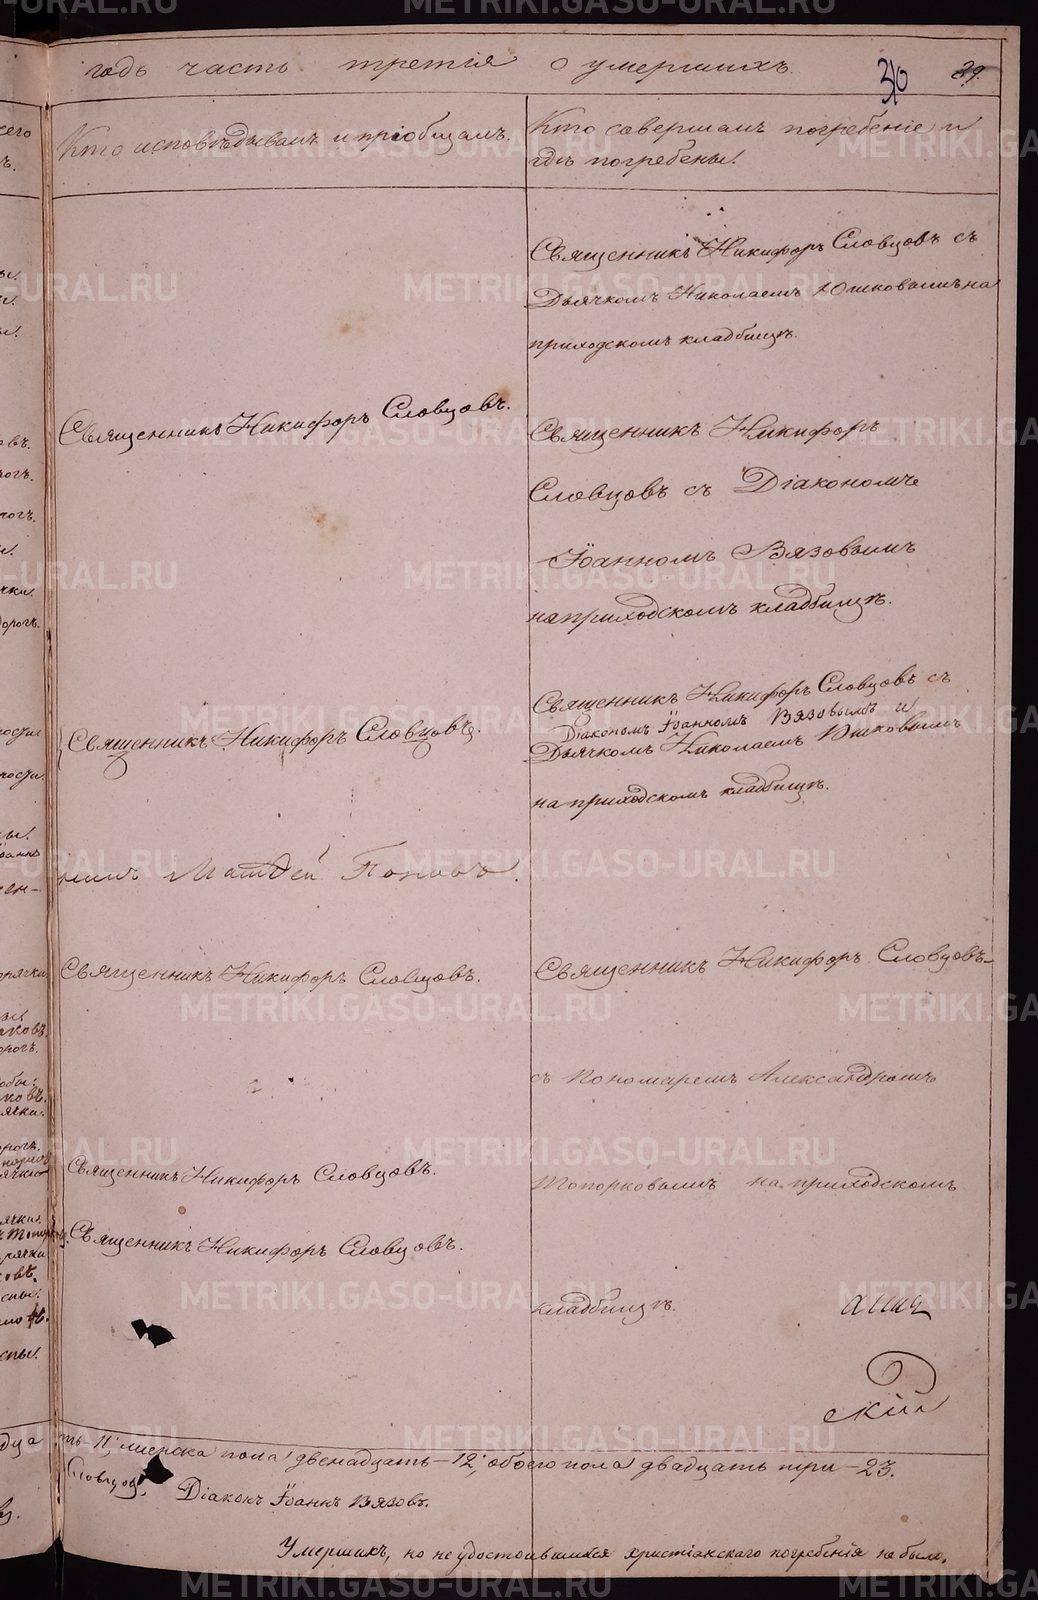 годъ часть третія о умершихъ.
36
39.
Кто исповѣдывалъ и пріобщалъ.
Кто совершалъ погребеніе и
гдѣ погребены.
Священникъ Никифоръ Словцовъ съ
Дьячкомъ Николаемъ Юшковымъ на
приходскомъ кладбищѣ.
Священникъ Никифоръ Словцовъ.
Священникъ Никифоръ
Словцовъ съ Діакономъ
Іоанномъ Вязовымъ
на приходскомъ кладбищѣ.
Священникъ Никифоръ Словцовъ.
Священникъ Никифоръ Словцовъ съ
Діакономъ Іоанномъ Вязовымъ и
Дьячкомъ Николаемъ Юшковымъ
на приходскомъ кладбищѣ.
Матѳей Поповъ.
Священникъ Никифоръ Словцовъ.
Священникъ Никифоръ Словцовъ
съ Пономаремъ Александромъ
Священникъ Никифоръ Словцовъ.
Топорковымъ на приходскомъ
Священникъ Никифоръ Словцовъ.
кладбищѣ.
скій
ть-11, женска пола двенадцать-12, обоего пола двадцать три-23.
Словцовъ,
Діаконъ Іоаннъ Вязовъ.
Умершихъ, но не удостоившихся христіанскаго погребенія не было.
METRIKI.GASO-URAL.RU